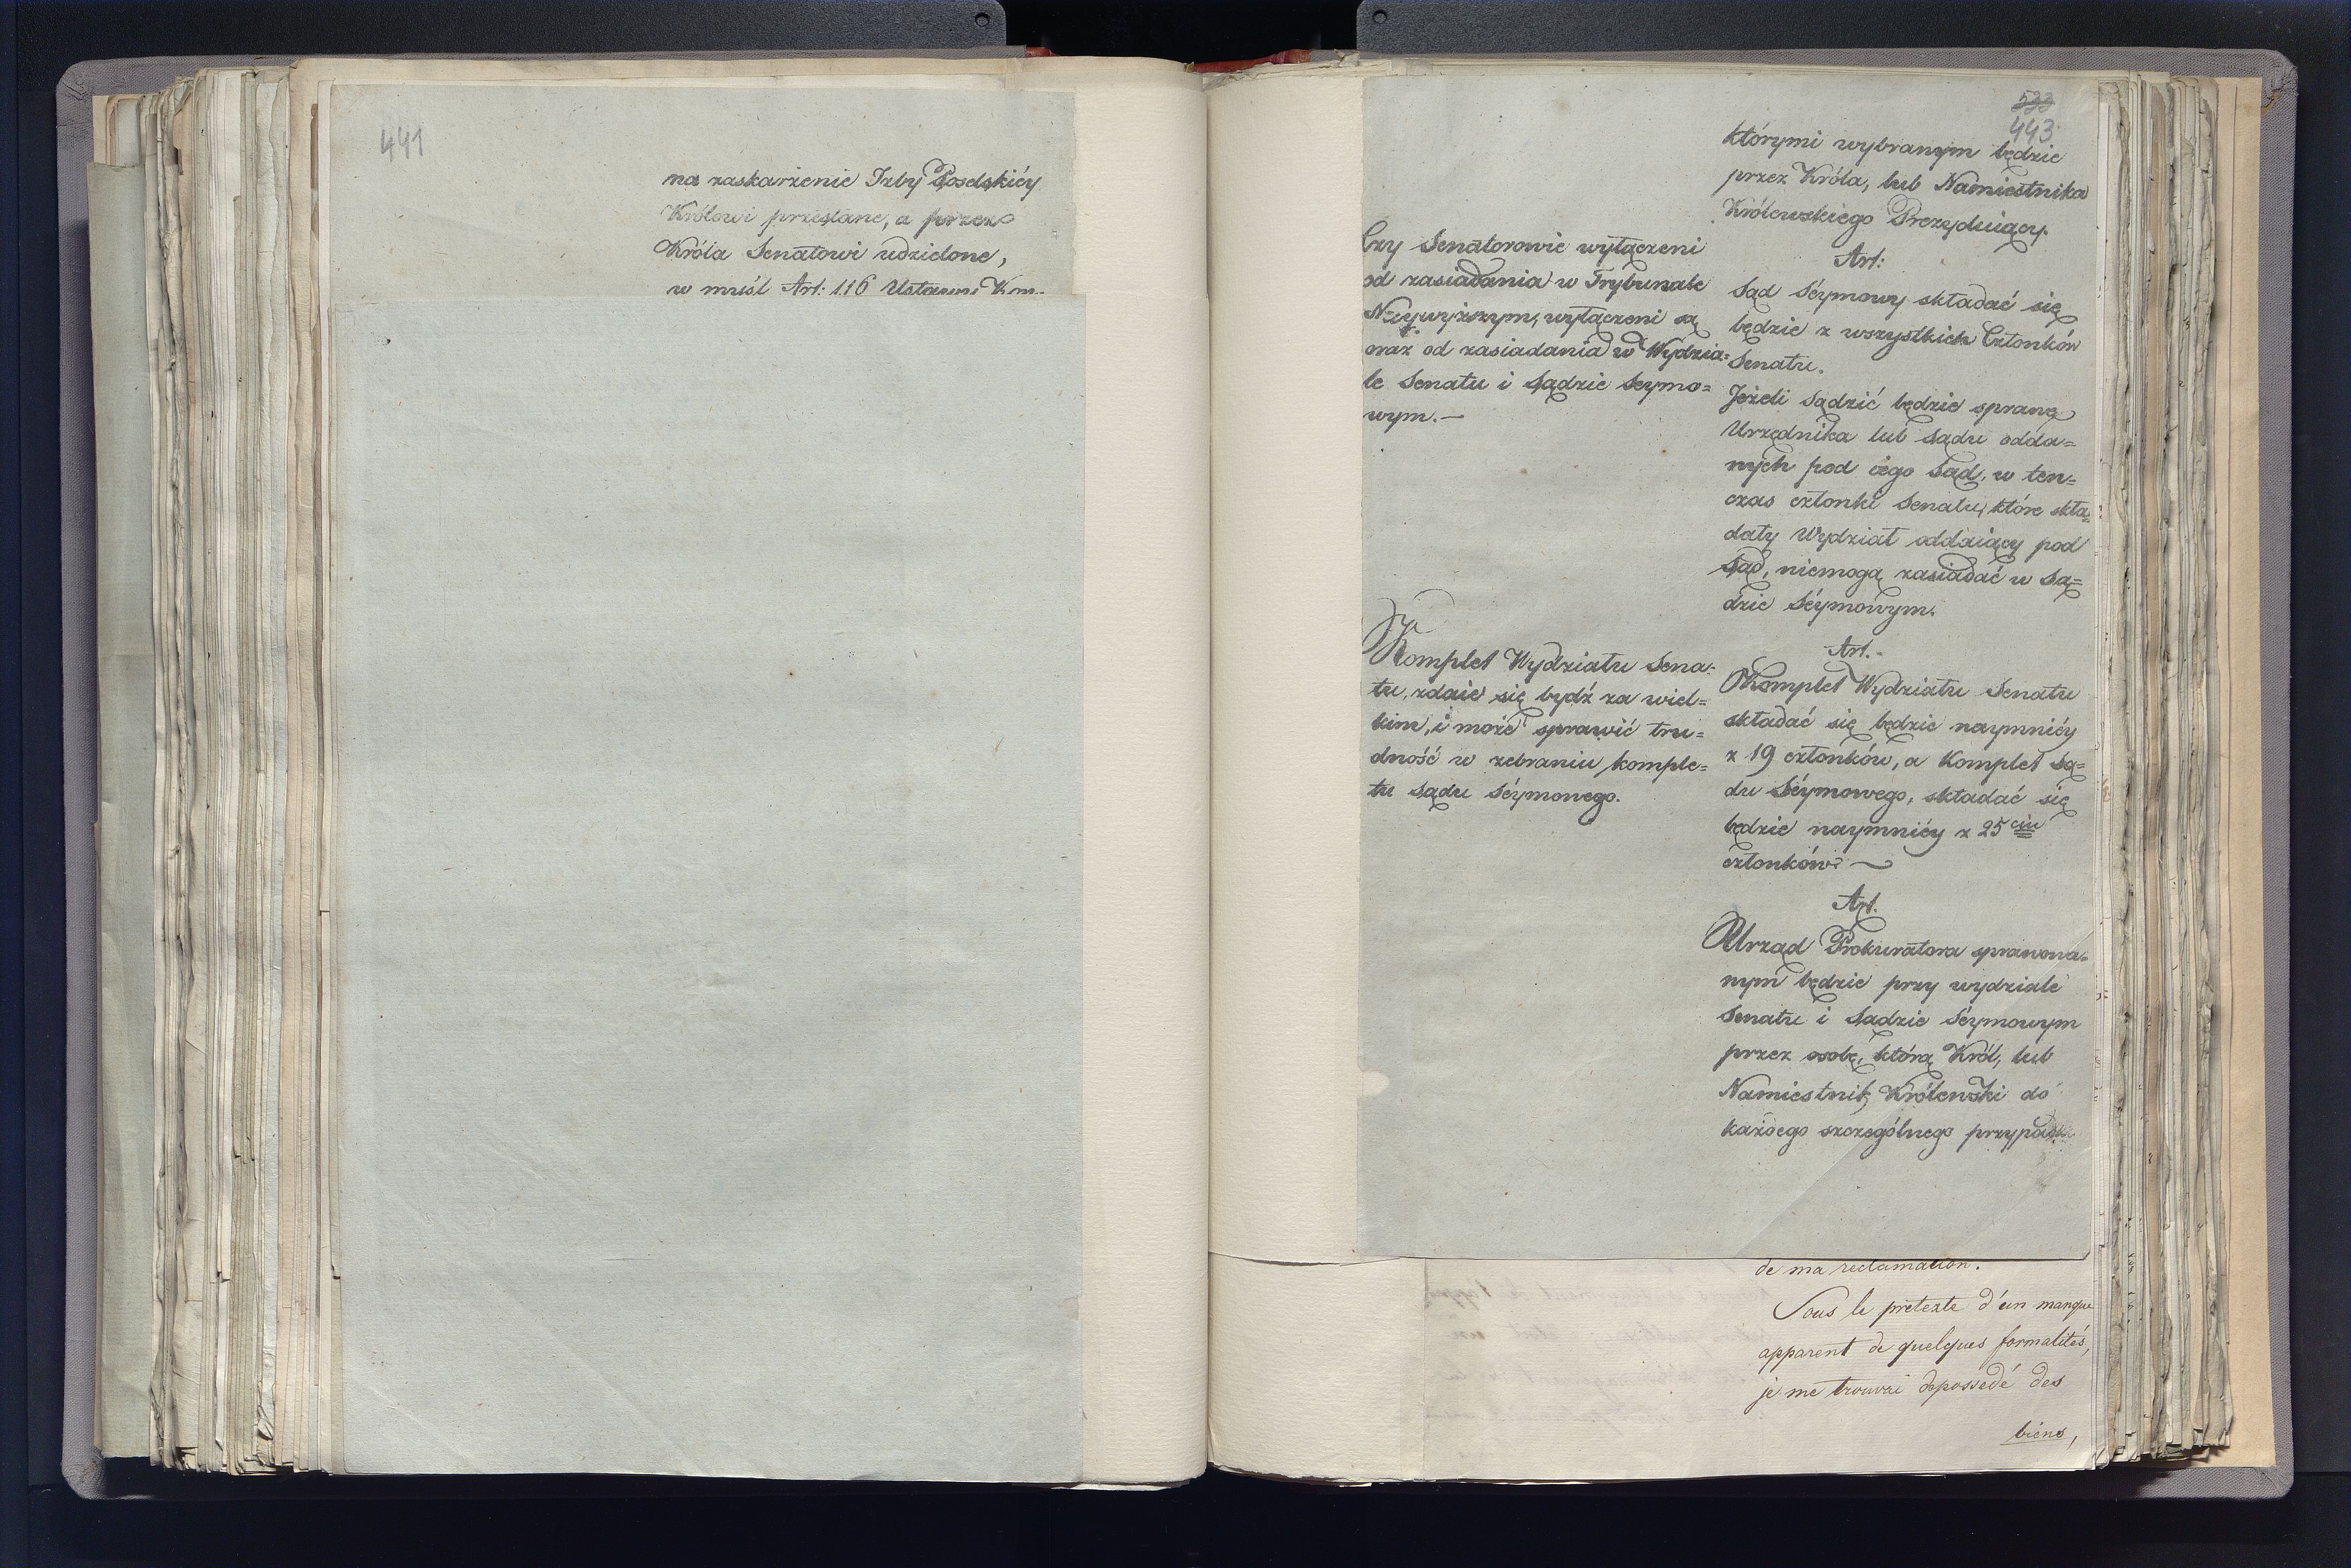 441
na zaskarżenie Izby Poselskiéy
Królowi przesłane, a przez
Króla Senatowi udzielone,
w myśl Art: 116 Ustawy Kon-
533
443
Czy Senatorowie wyłączeni
od zasiadania w Trybunale
Naywyższym, wyłączeni są
oraz od zasiadania w Wydzia=
le Senatu i Sądzie Seymo=
wym.—
Komplet Wydziału Sena=
tu, zdaie się bydź za wiel=
kim, i może sprawić tru=
dność w zebraniu komple=
tu Sądu Séymowego.
którymi wybranym będzie
przez Króla, lub Namiestnika
Królewskiego Prezyduiący.
Art:
Sąd Séymowy składać się
będzie z wszystkich Członków
Senatu.
Jeżeli sądzić będzie sprawę
Urzędnika lub Sądu odda=
nych pod iego Sąd, w ten=
czas członki Senatu, które skła=
dały Wydział oddaiący pod
Sąd, niemogą zasiadać w Są=
dzie Séymowym.
Art.-
Komplet Wydziału Senatu
składać się będzie naymniéy
z 19 członków, a Komplet Są=
du Séymowego, składać się
będzie naymniéy z 25ciu
członków.
Art.
Urząd Prokuratora sprawowa=
nym będzie przy wydziale
Senatu i Sądzie Séymowym
przez osobę, którą Król, lub
Namiestnik Królewski do
każdego szczególnego przypadku
de ma reclamation.
Sous le prétexte d'un manque
apparent de quelques formalités,
je me trouvai depossedé des
biens,